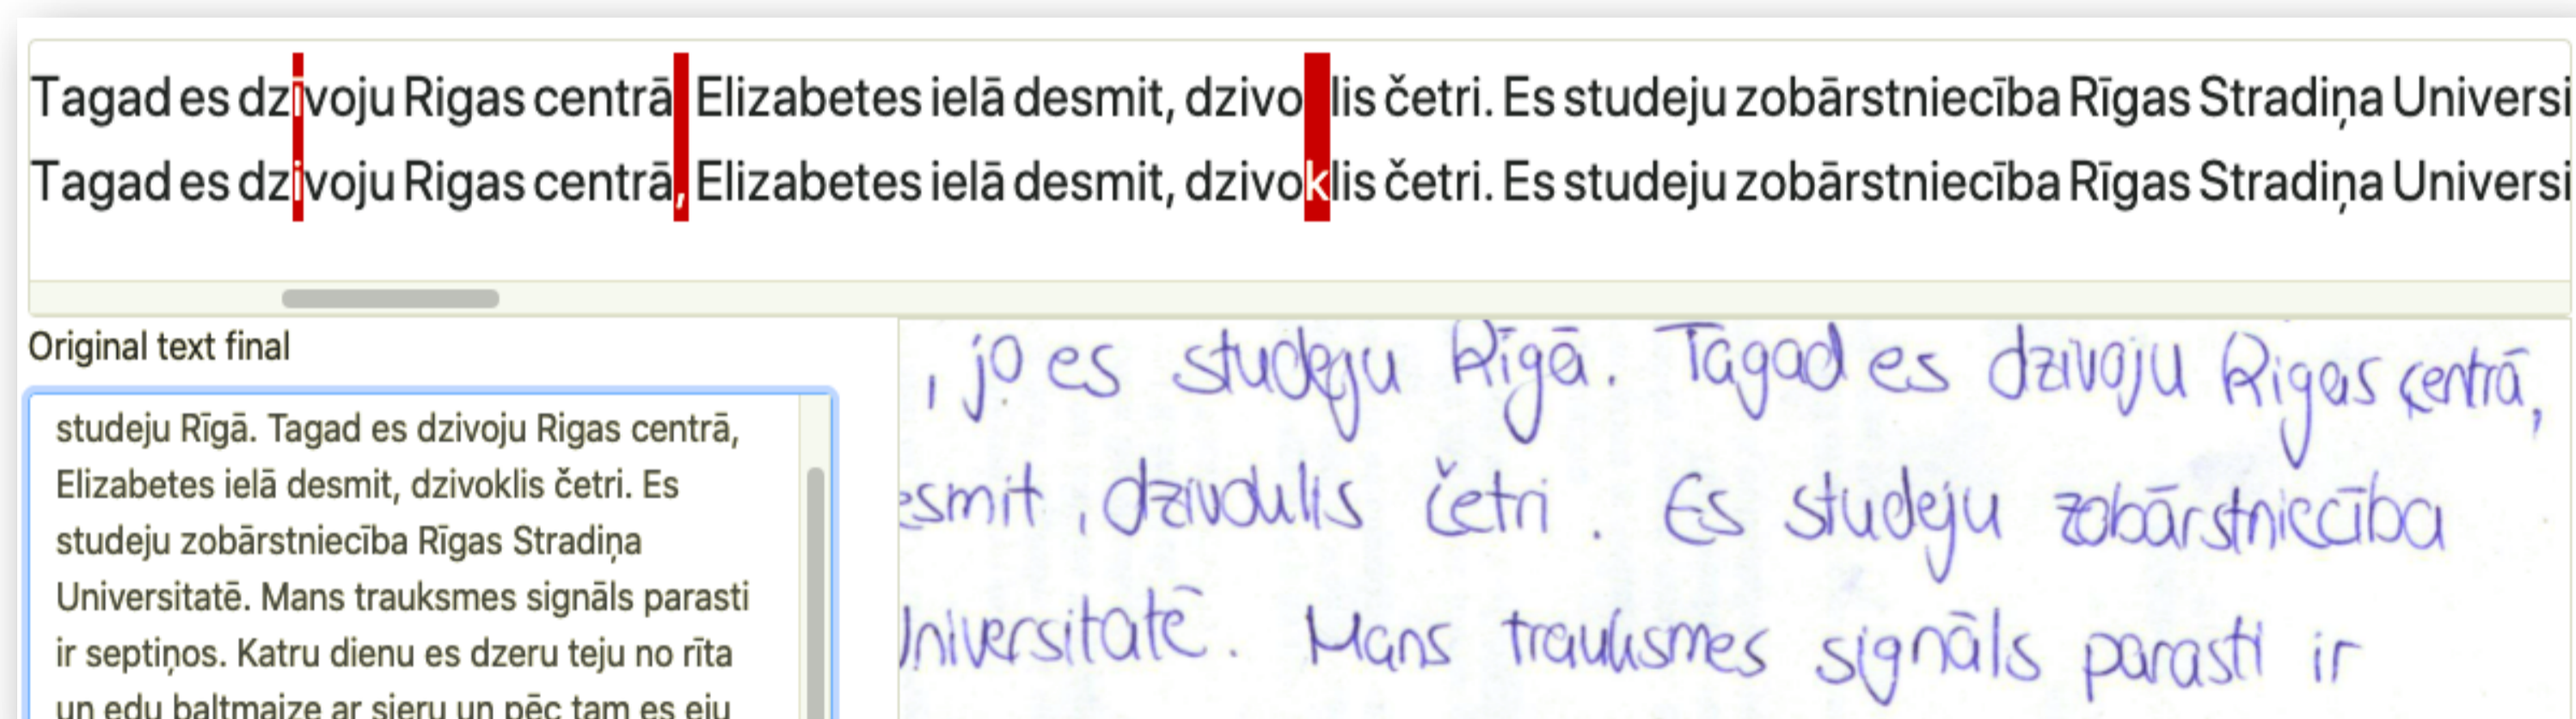 Tagad es dzīvoju Rigas centrā Elizabetes ielā desmit, dzivo lis četri. Es studeju zobārstniecība Rīgas Stradiņa Universi
Tagad es dzivoju Rigas centrā, Elizabetes ielā desmit, dzivoklis četri. Es studeju zobārstniecība Rīgas Stradiņa Universi
Original text final
studeju Rīgā. Tagad es dzivoju Rigas centrā,
Elizabetes ielā desmit, dzivoklis četri. Es
studeju zobārstniecība Rīgas Stradiņa
Universitatē. Mans trauksmes signāls parasti
ir septiņos. Katru dienu es dzeru teju no rīta
un edu baltmaize ar sieru un pēc tam es eju
, jo es studeju Rīgā. Tagad es dzivoju Rigas centrā,
esmit, dzivoklis četri. Es studeju zobārstniecība
Universitatē. Mans trauksmes signāls parasti ir